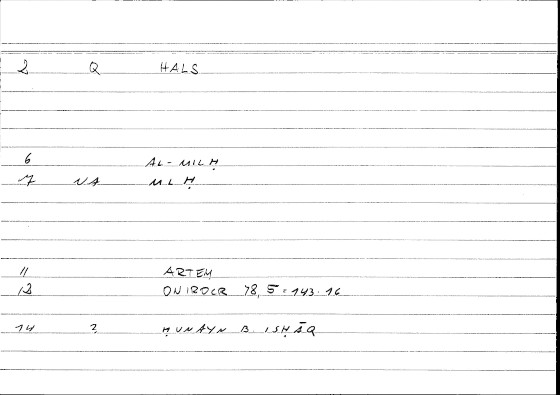 2 Q HALS
6 AL-MILḤ
7 NA MLḤ
11 ARTEM
12 ONIROCR 78, 5 = 143.16
14 2 ḤUNAYN B. ISḤĀQ